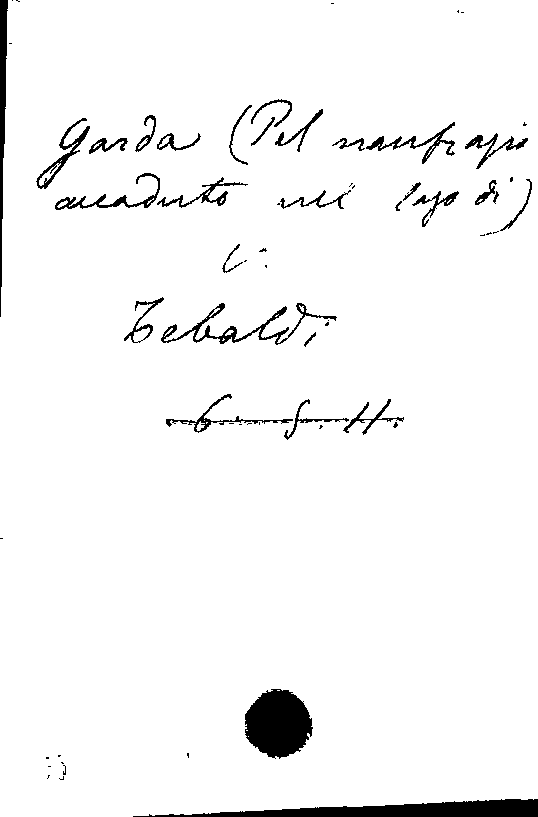 Garda (Pel naufragio
accaduto nel lago di)
V.
Tebaldi
6. 5. 11.